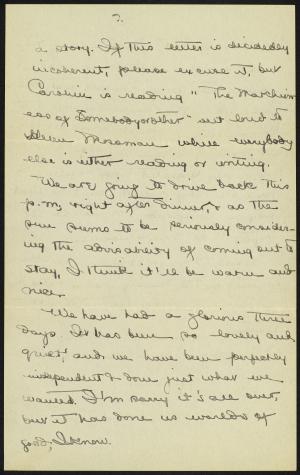 7.
a story. If this letter is decidedly
incoherent, please excuse it, but
Caroline is reading "The Marchion-
ess of Somebodyorother" out loud to
Helen Mossman while everybody
else is either reading or writing.
We are going to drive back this
p.m. right after dinner, & as the
sun seems to be seriously consider-
ing the advisability of coming out to
stay, I think it'll be warm and
nice.
We have had a glorious three
days. It has been so lovely and
quiet, and we have been perfectly
independent & done just what we
wanted. I'm sorry it's all over,
but it has done us worlds of
good, I know.